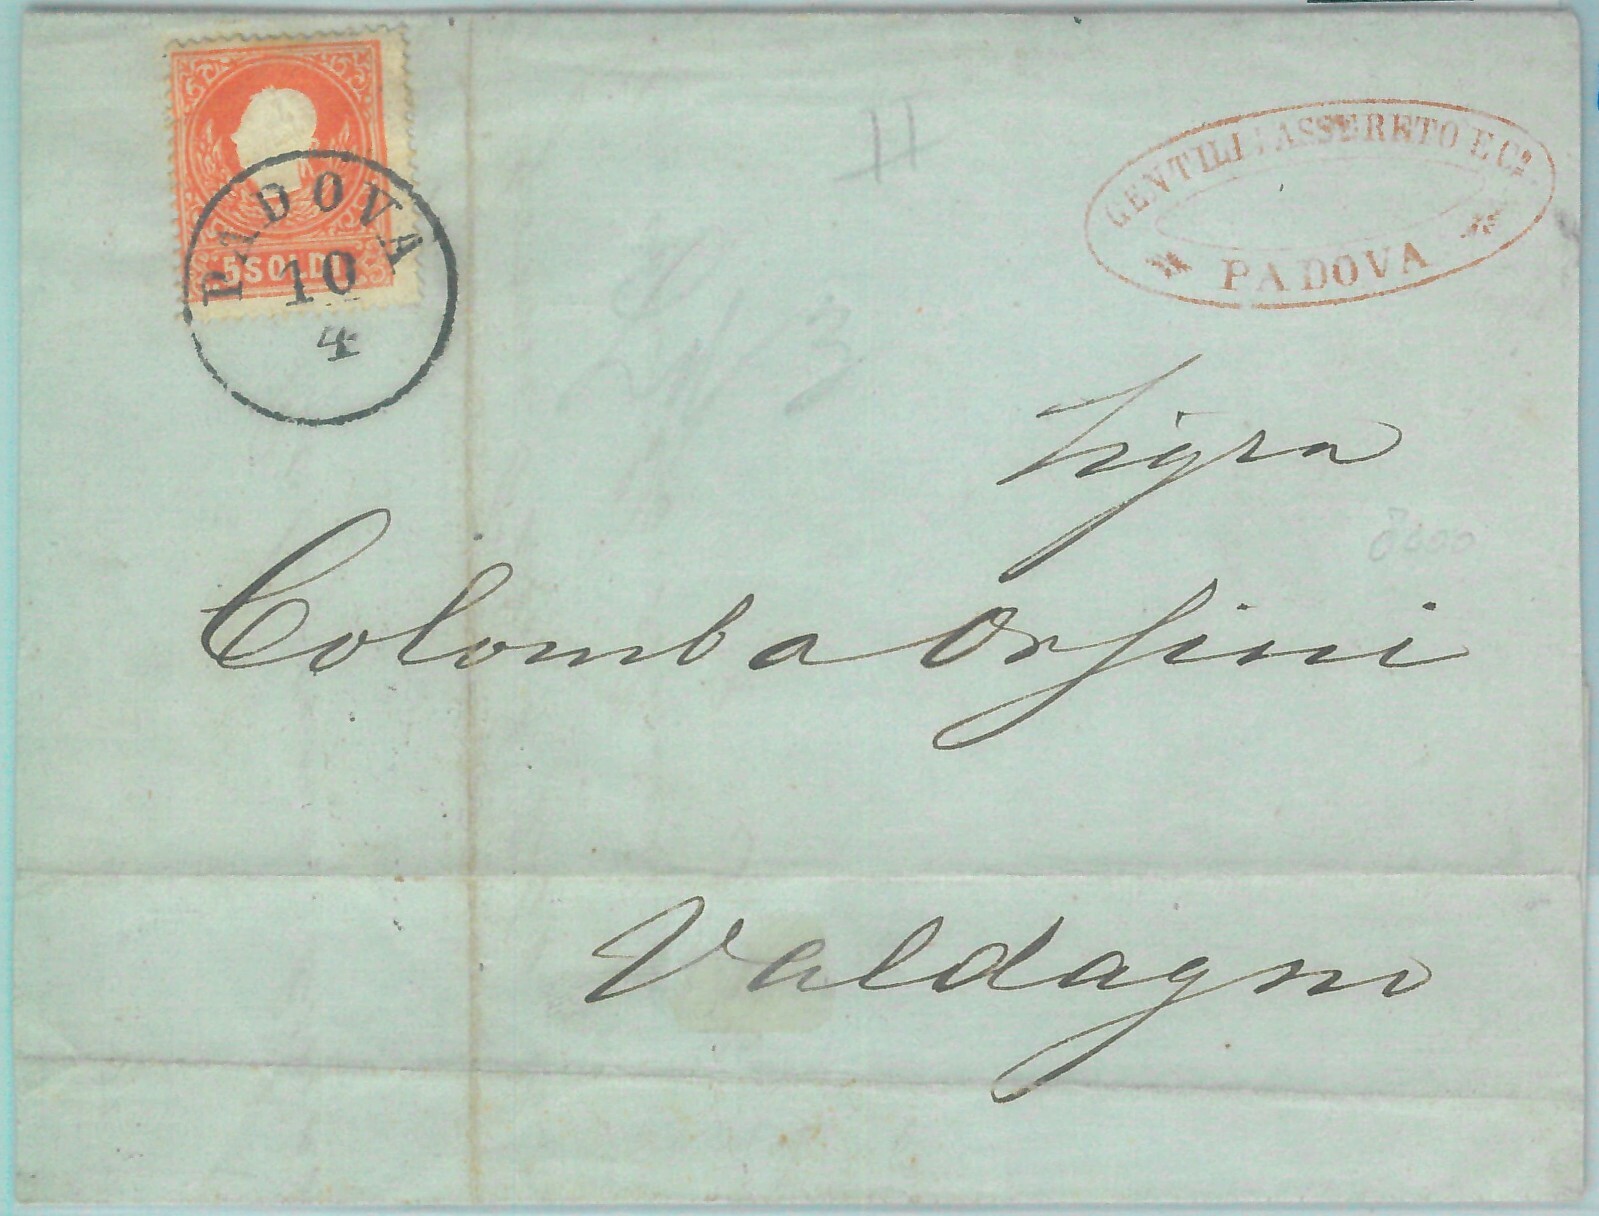 5 SOLDI
PADOVA
10
4
GENTILI ASSERETO E Cº.
PADOVA
11
N 3
Sigra
8000
Colomba Orsini
Valdagno